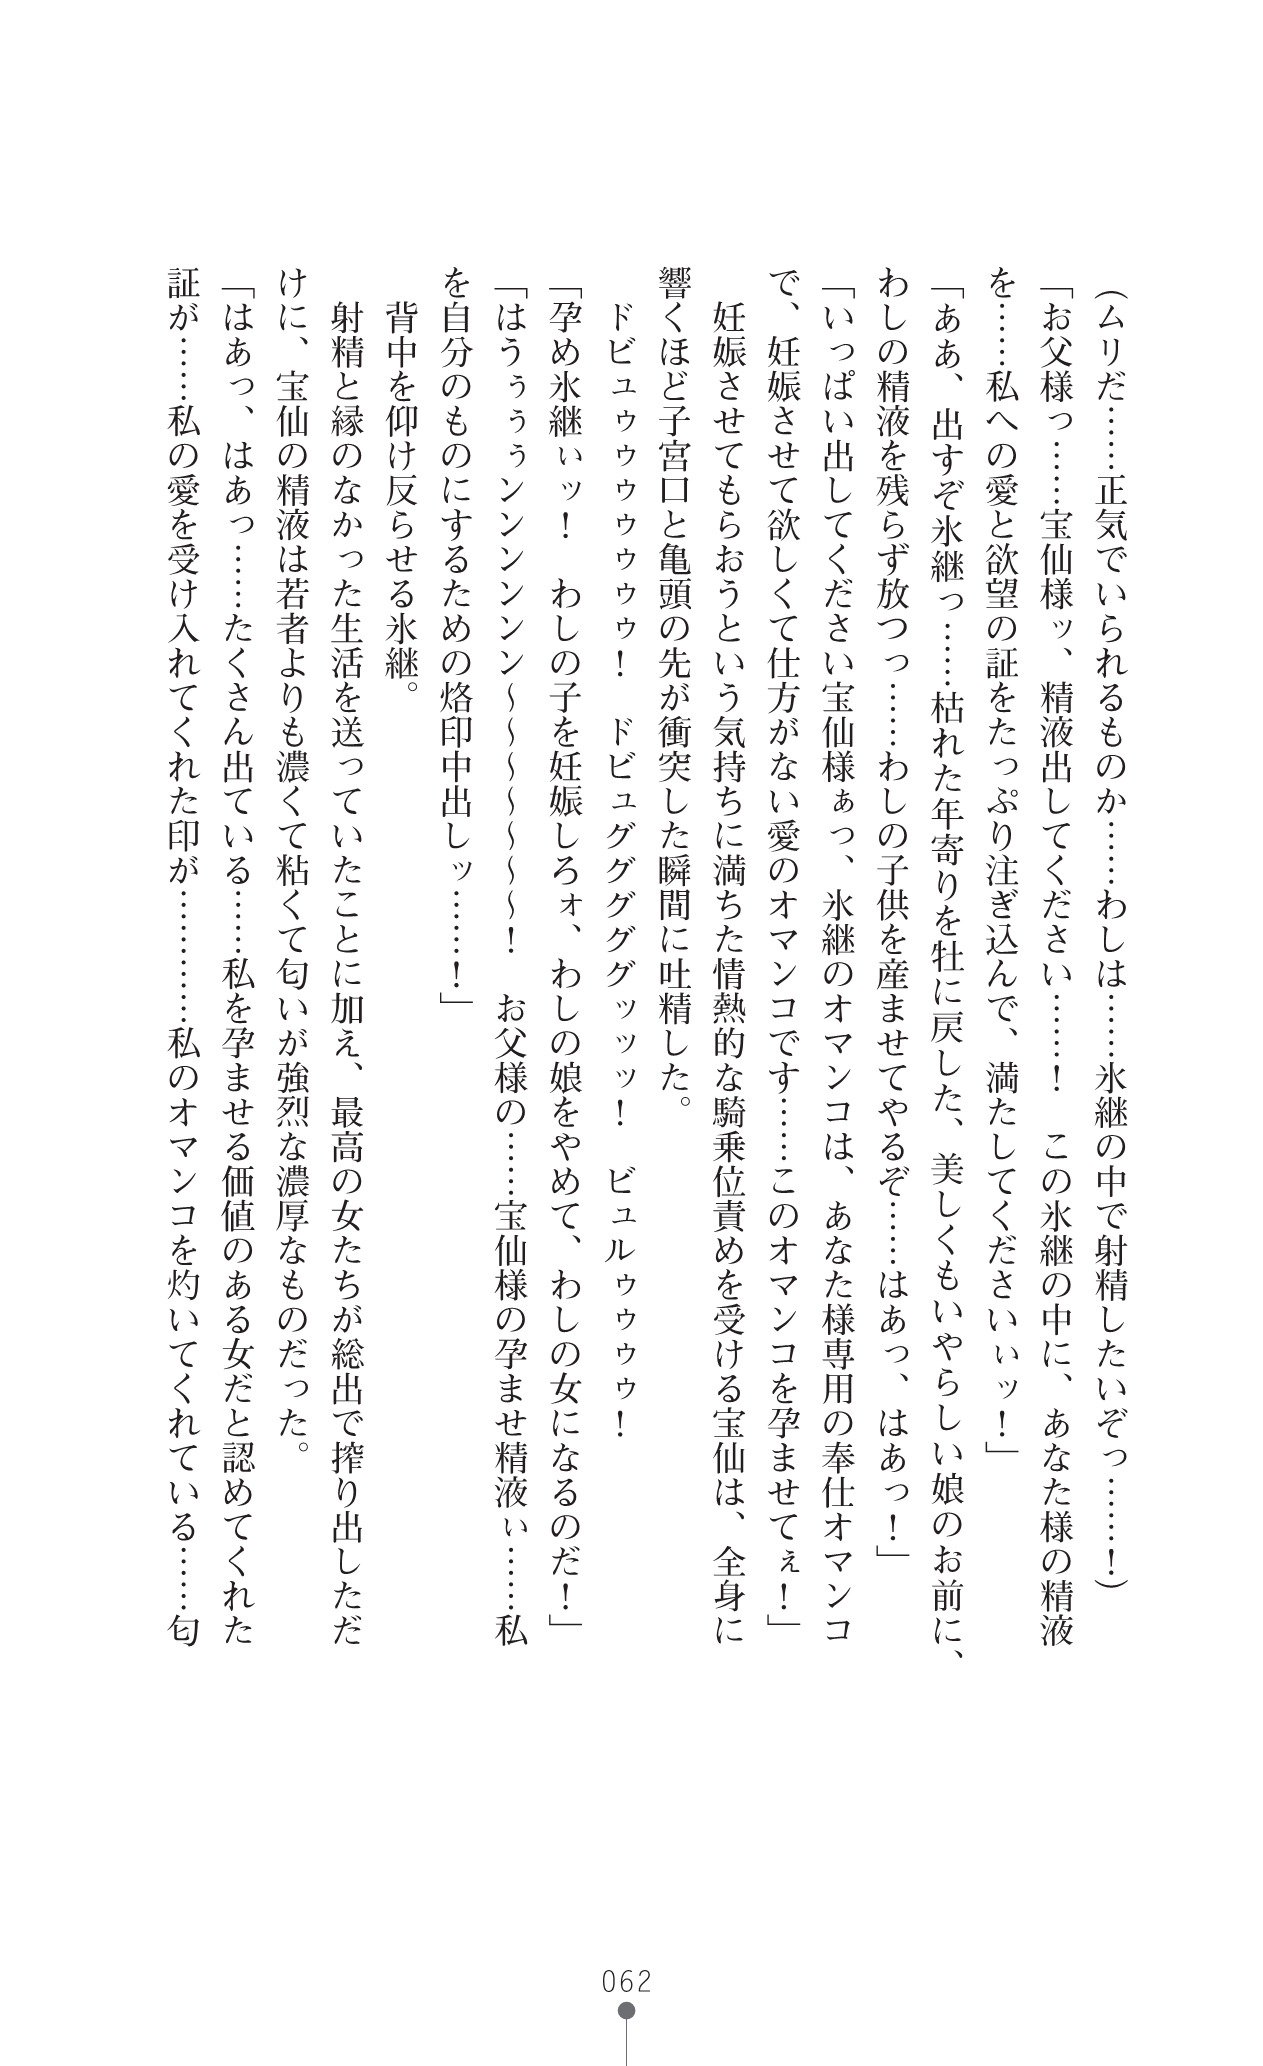 （ムリだ……正気でいられるものか……わしは……氷継の中で射精したいぞっ……！）
「お父様っ……宝仙様ッ、精液出してください……！　この氷継の中に、あなた様の精液
を……私への愛と欲望の証をたっぷり注ぎ込んで、満たしてくださいぃッ！」
「ああ、出すぞ氷継っ……枯れた年寄りを牡に戻した、美しくもいやらしい娘のお前に、
わしの精液を残らず放つっ……わしの子供を産ませてやるぞ……はあっ、はあっ！」
「いっぱい出してください宝仙様ぁっ、氷継のオマンコは、あなた様専用の奉仕オマンコ
で、妊娠させて欲しくて仕方がない愛のオマンコです……このオマンコを孕ませてぇ！」
　妊娠させてもらおうという気持ちに満ちた情熱的な騎乗位責めを受ける宝仙は、全身に
響くほど子宮口と亀頭の先が衝突した瞬間に吐精した。
　ドビュゥゥゥゥゥゥ！　ドビュグググググッッッ！　ビュルゥゥゥゥ！
「孕め氷継ぃッ！　わしの子を妊娠しろォ、わしの娘をやめて、わしの女になるのだ！」
「はうぅぅぅンンンンンン～～～～～～～！　お父様の……宝仙様の孕ませ精液ぃ……私
を自分のものにするための烙印中出しッ……！」
　背中を仰け反らせる氷継。
　射精と縁のなかった生活を送っていたことに加え、最高の女たちが総出で搾り出しただ
けに、宝仙の精液は若者よりも濃くて粘くて匂いが強烈な濃厚なものだった。
「はあっ、はあっ……たくさん出ている……私を孕ませる価値のある女だと認めてくれた
証が……私の愛を受け入れてくれた印が…………私のオマンコを灼いてくれている……匂
062